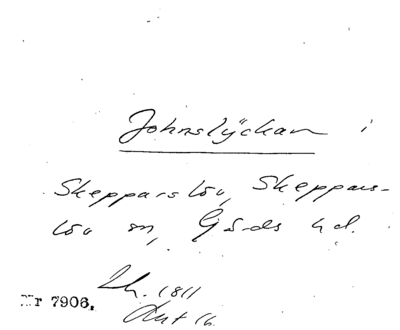 Johnslyckan i
Skepparslöv, Skeppars-
löv sn, Gärds hd.
1811
Akt 16
Nr 7906.